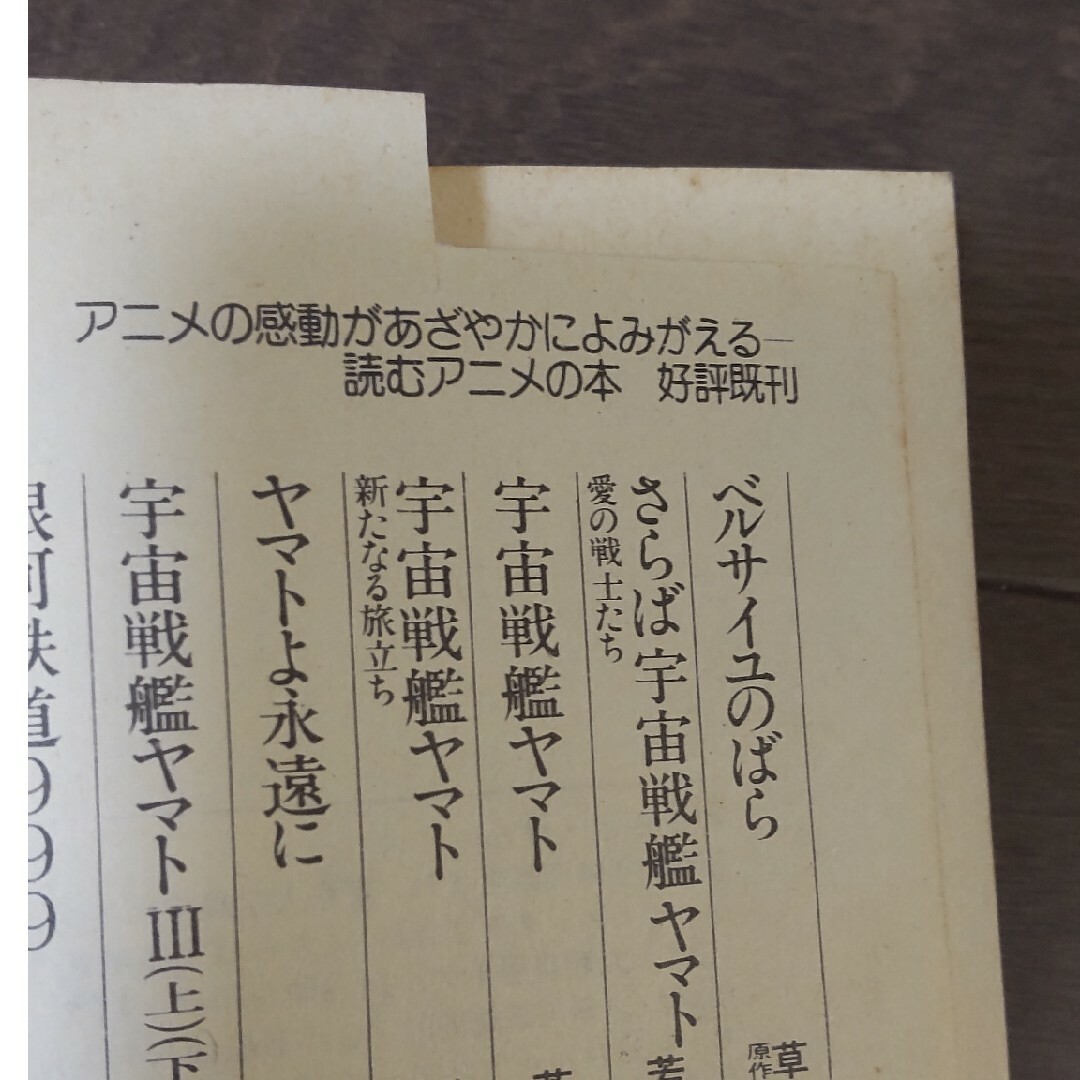 アニメの感動があざやかによみがえる―
読むアニメの本　好評既刊
ベルサイユのばら
原作
草
さらば宇宙戦艦ヤマト
愛の戦士たち
宇宙戦艦ヤマト
宇宙戦艦ヤマト
新たなる旅立ち
ヤマトよ永遠に
宇宙戦艦ヤマトIII(上)(下
銀河鉄道999